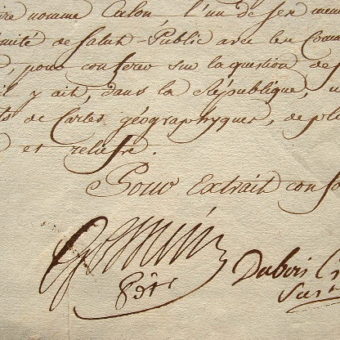 nomme Calon, l'un de ses mem
de Salut Public avec les Com
, pour conferer sur la question de s
y ait, dans la République, u
de Cartes géographyques, de pl
et reliefs.
Pour Extrait conf
Pdt
Dubois C